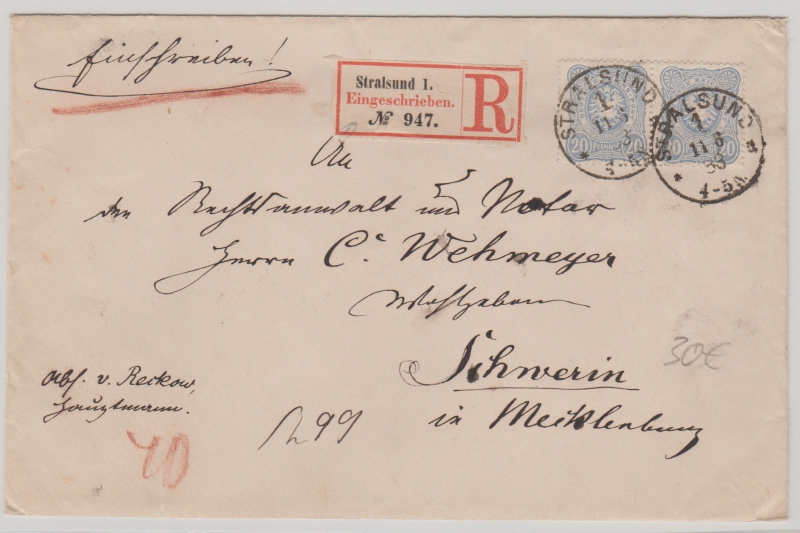 Einschreiben!
Stralsund 1.
Eingeschrieben.
№ 947.
R
STRALSUND
1
11 8
83
4-5N.
STRALSUND
1
11 8
83
4-5N.
20 PFENNIG 20
20 20
An
den Rechtsanwalt und Notar
Herrn C. Wehmeyer
Wohlgeboren
Schwerin
in Mecklenburg
30€
Abs. v. Reckow,
Hauptmann.
40
99